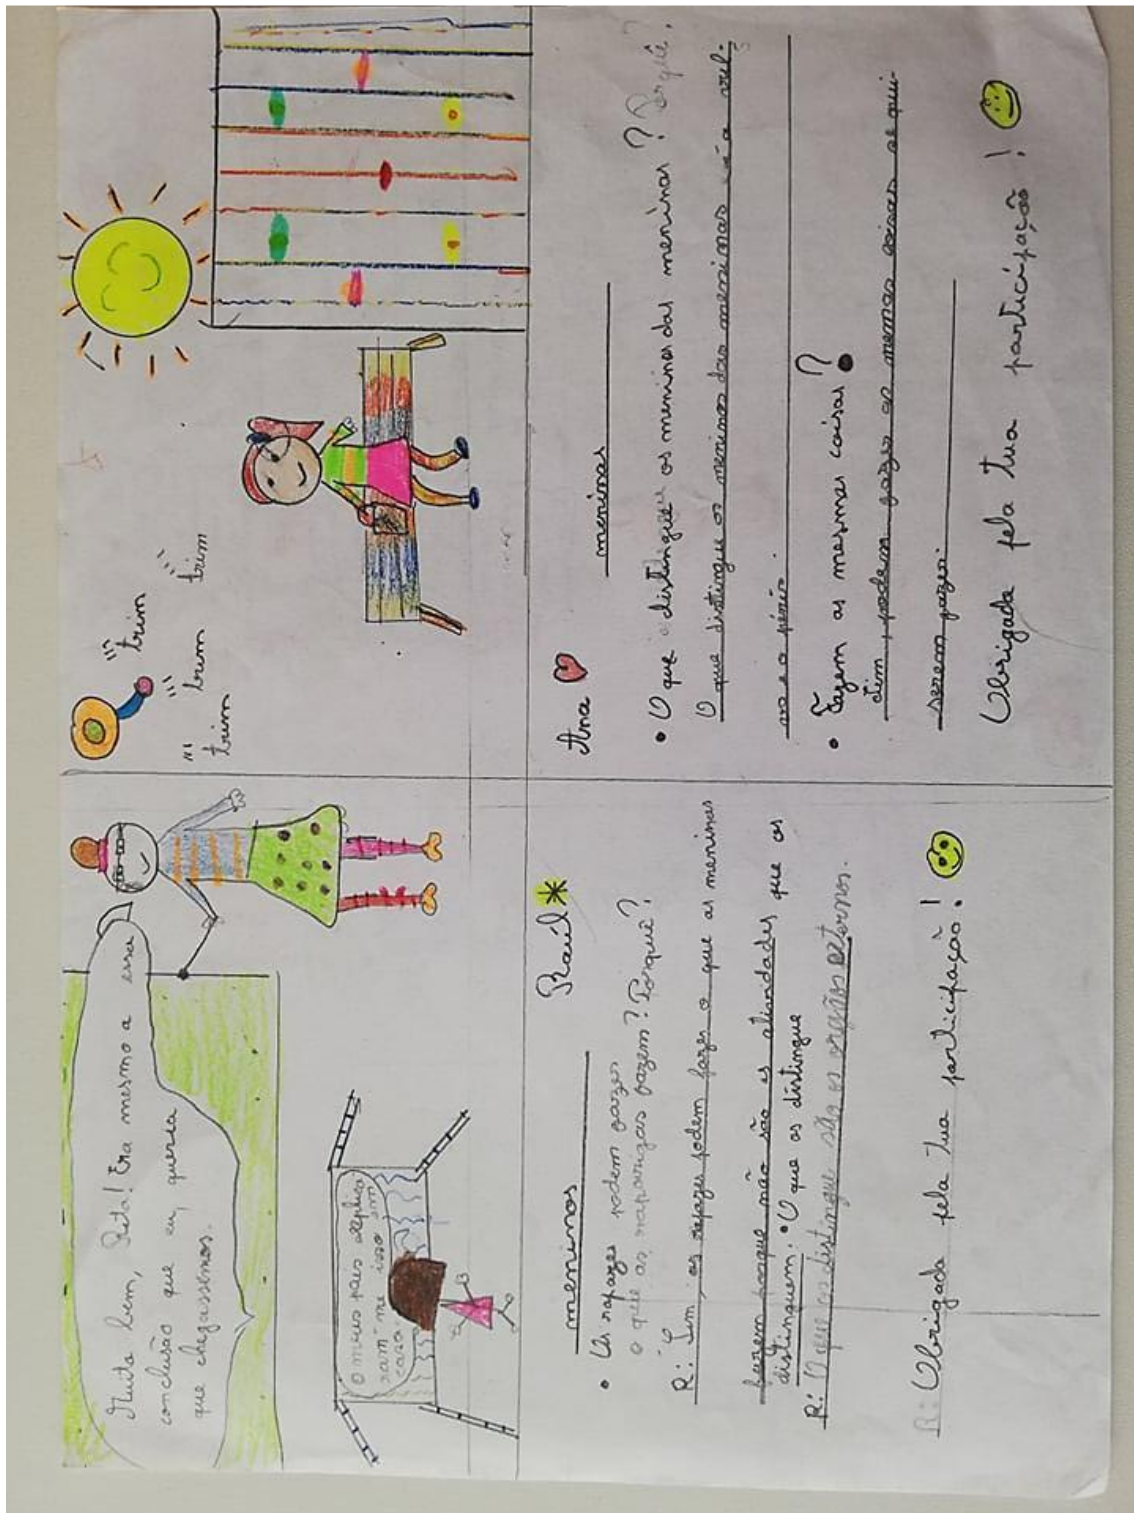 Muito bem, Rita! Era mesmo a essa
conclusão que eu, queria
que chegassemos.
O meus pais explica
ram-me isso em
casa
"" trim
"" trim
"" trim
"" trim
trim
meninos
Raúl
• Os rapazes podem fazer
o que as raparigas fazem? Porquê?
R: Sim, os rapazes podem fazer o que as meninas
fazem porque não são as atividades que os
distinguem. • O que os distingue
R: O que os distingue são os orgãos externos.
R: Obrigada pela tua participação!
Ana
meninas
• O que distingue os meninos das meninas? Porquê?
O que distingue os meninos das meninas é a vul-
va e o pénis.
• Fazem as mesmas coisas?
Sim, podem fazer as memas coisas se qui-
serem fazer.
Obrigada pela tua participação!